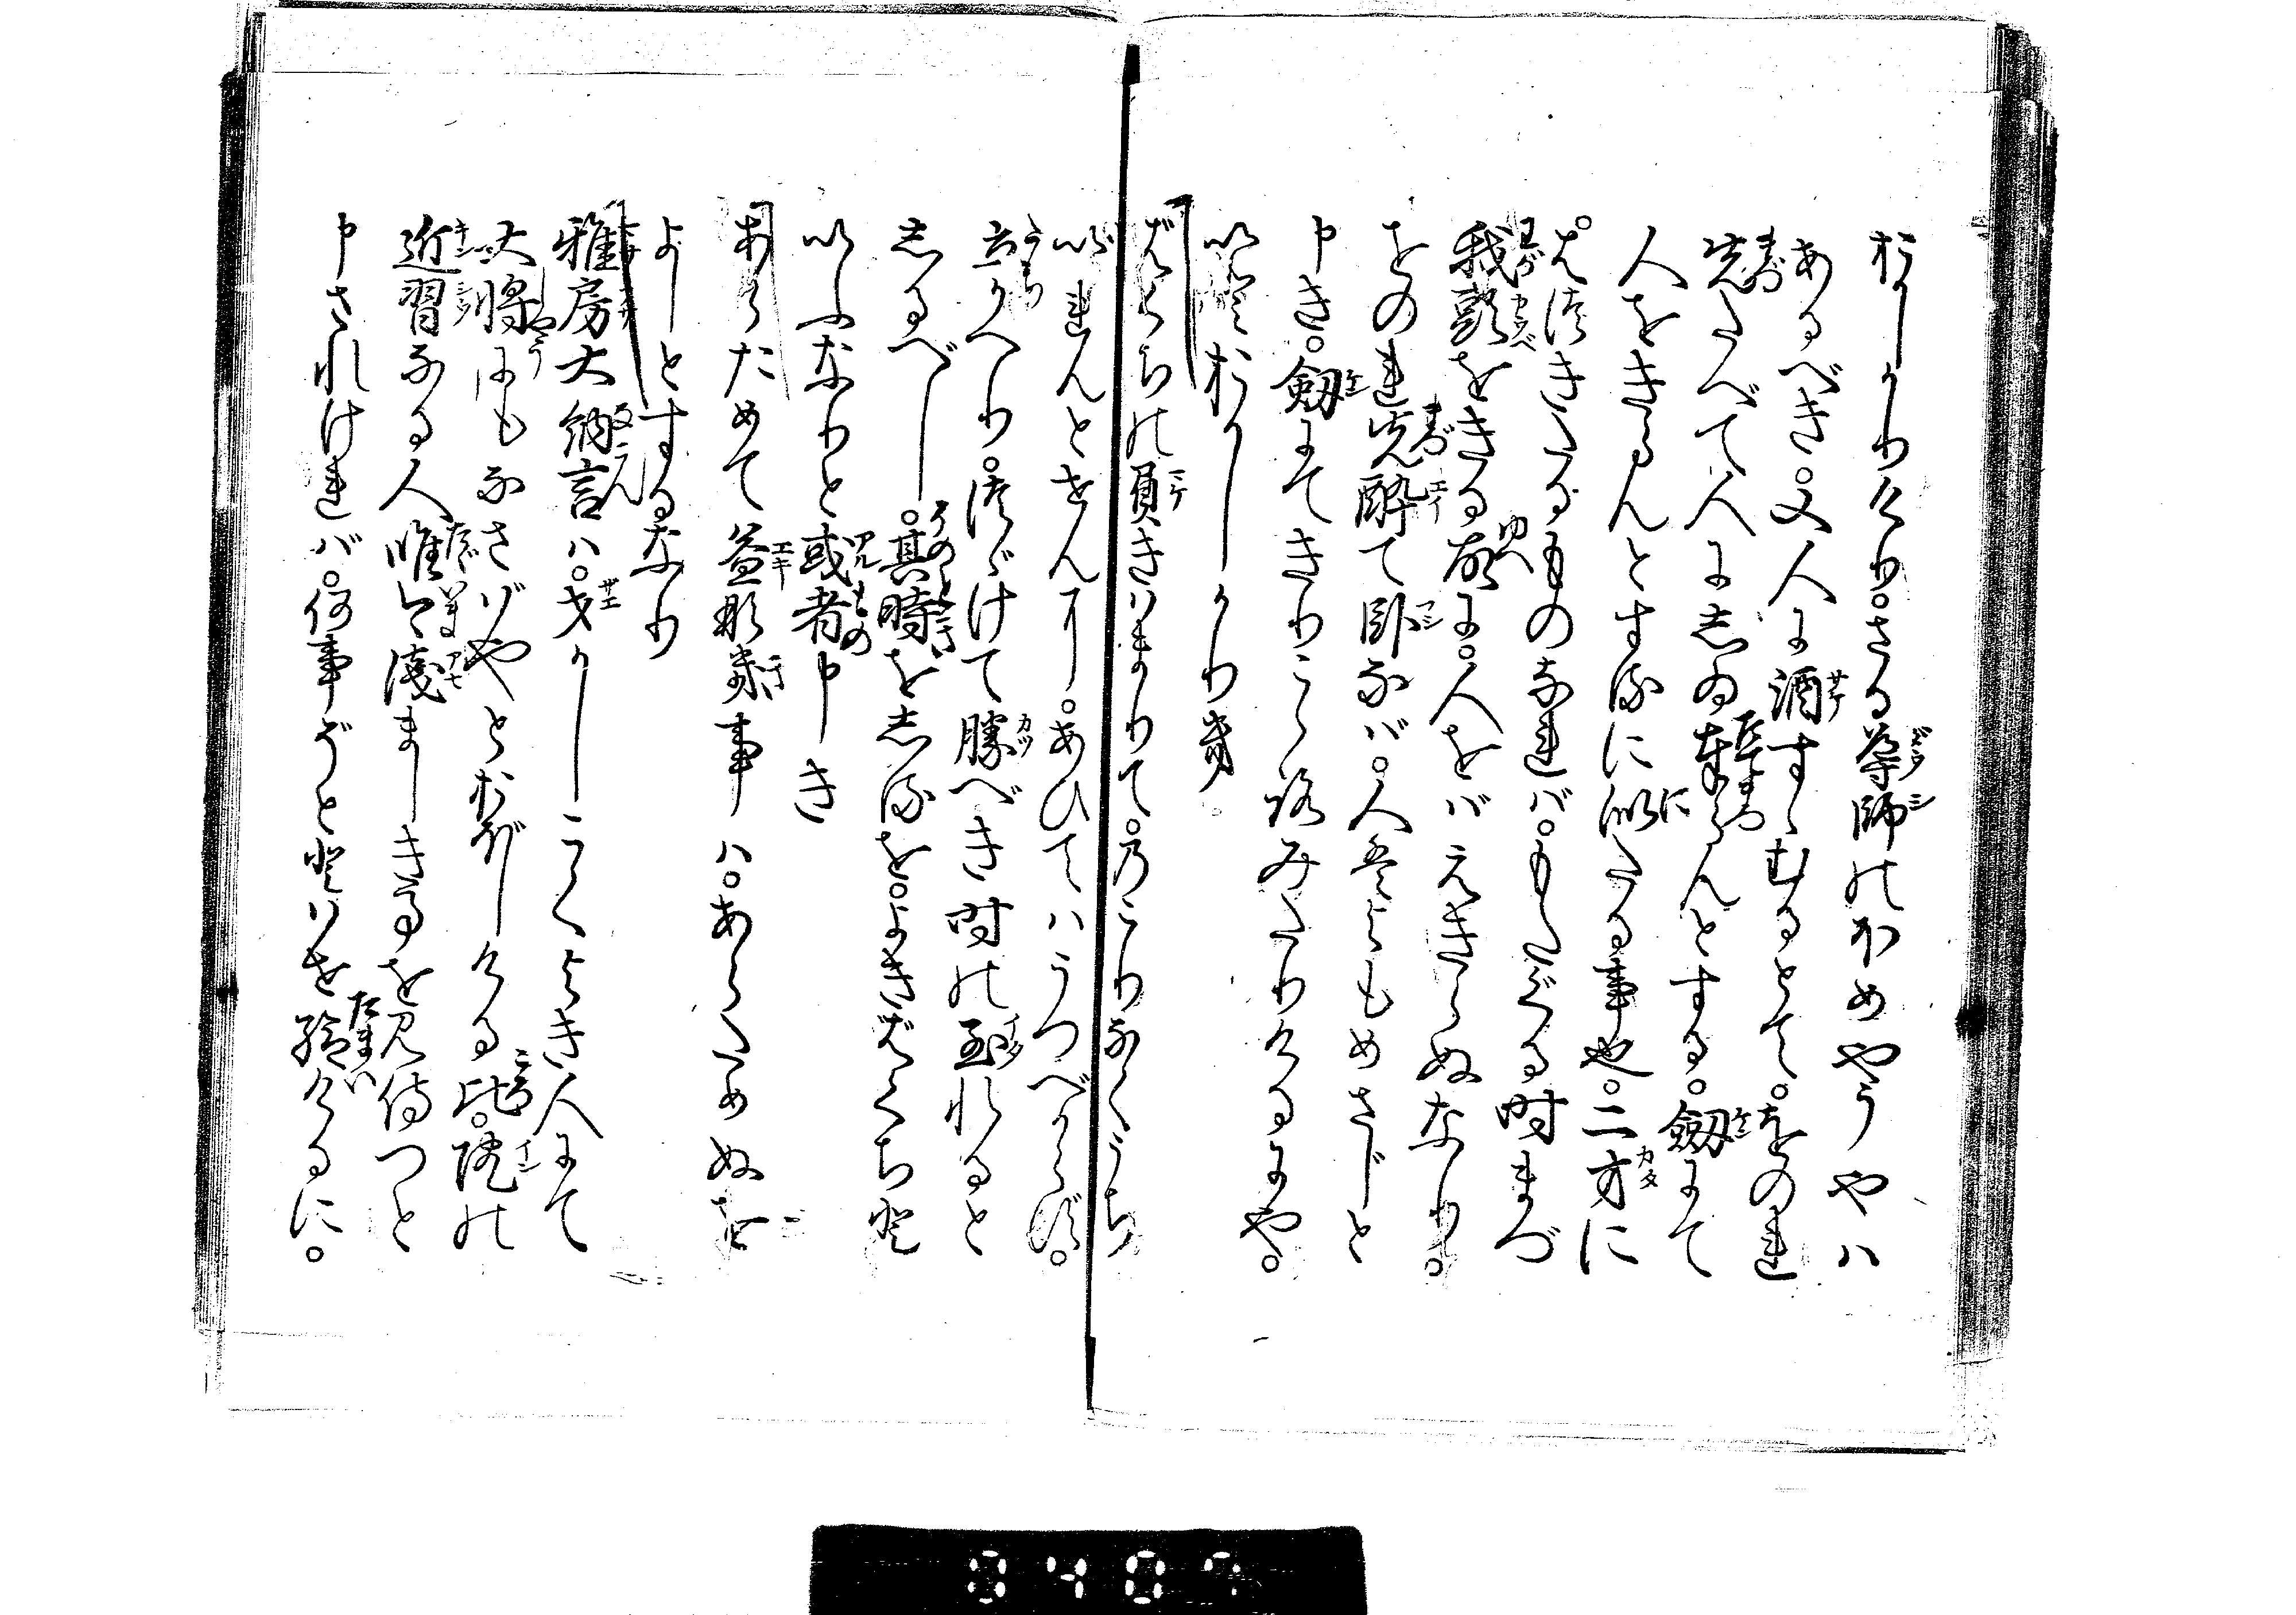 おかしかりけり。さる導師のほめやうやハ
あるべき。又人に酒すゝむるとて。をのれ
先たべて人にしゐ奉らんとする。剱にて
人をきらんとするに似たる事也。二方に
はつきたるものなれバ。もたぐる時まづ
我頭をきる故に。人をバえきらぬなり。
をのれ先酔て臥なバ。人ハよもめさじと
申き。剱にてきりこゝろみたりけるにや。
いとおかしかりき
ばくちの負きハまりて。のこりなくうち
いれんとせんに。あひてハうつべからず。
立かへり。つゞけて勝べき時の至れると
しるべし。其時をしるを。よきばくちと
いふなりと或者申き
あらためて益なき事ハ。あらためぬを
よしとするなり
雅房大納言ハ。才かしこくよき人にて
大将にもなさばやとおぼしける比。院の
近習なる人唯今浅ましき事を見侍つと
申されけれバ。何事ぞととはせ給けるに。
0407